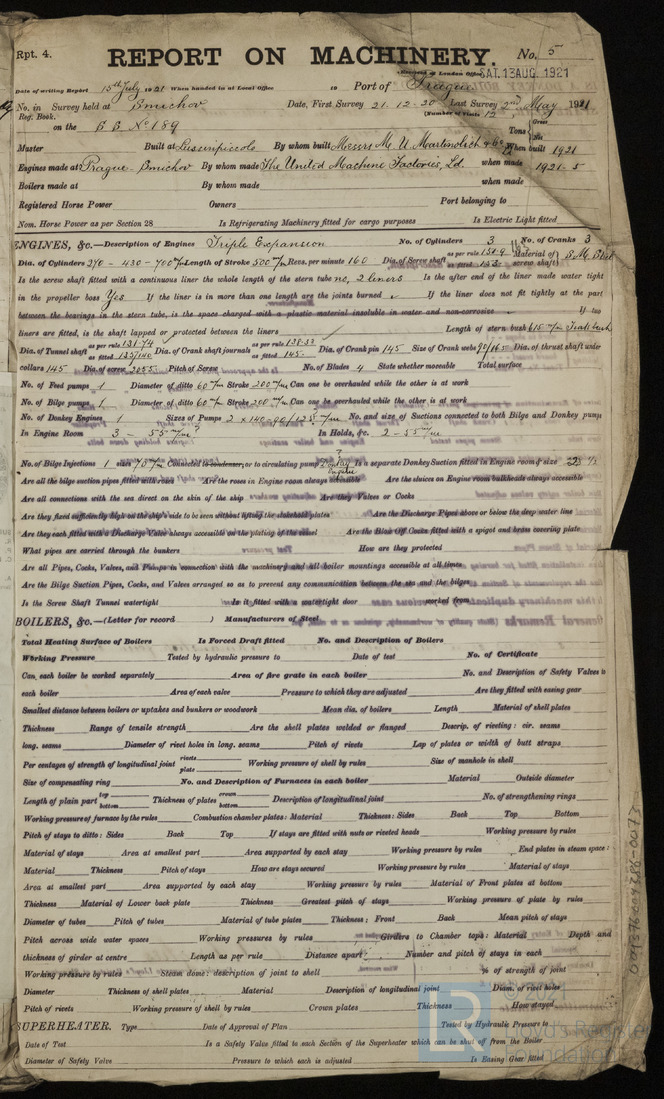 Rpt. 4.
REPORT ON MACHINERY. No. 5
Received at London Office SAT. 13 AUG. 1921
Date of writing Report 15th July 1921 When handed in at Local Office 10 Port of Prague
No. in Survey held at Smichov Date, First Survey 21-12-20 Last Survey 2nd May 1921
Reg. Book. (Number of Visits 12)
on the S.S. No 189 Tons { Gross Net
Master Built at Lussinpiccolo By whom built Messrs M. U. Martinolich & Co When built 1921
Engines made at Prague-Smichov By whom made The United Machine Factories, Ld. when made 1921-5
Boilers made at By whom made when made
Registered Horse Power Owners Port belonging to
Nom. Horse Power as per Section 28 Is Refrigerating Machinery fitted for cargo purposes Is Electric Light fitted
ENGINES, &c.—Description of Engines Triple Expansion No. of Cylinders 3 No. of Cranks 3
Dia. of Cylinders 270 - 430 - 700 m/m Length of Stroke 500 m/m Revs. per minute 160 Dia. of Screw shaft as per rule 151.9 as fitted 153 Material of screw shaft S.M. Steel
Is the screw shaft fitted with a continuous liner the whole length of the stern tube no, 2 liners Is the after end of the liner made water tight
in the propeller boss Yes If the liner is in more than one length are the joints burned If the liner does not fit tightly at the part
between the bearings in the stern tube, is the space charged with a plastic material insoluble in water and non-corrosive If two
liners are fitted, is the shaft lapped or protected between the liners Length of stern bush 615 m/m
Dia. of Tunnel shaft as per rule 131.74 as fitted 135/140 Dia. of Crank shaft journals as per rule 138.33 as fitted 145 Dia. of Crank pin 145 Size of Crank webs 90/165 Dia. of thrust shaft under
collars 145 Dia. of screw 2055 Pitch of Screw No. of Blades 4 State whether moveable Total surface
No. of Feed pumps 1 Diameter of ditto 60 m/m Stroke 200 m/m Can one be overhauled while the other is at work
No. of Bilge pumps 1 Diameter of ditto 60 m/m Stroke 200 m/m Can one be overhauled while the other is at work
No. of Donkey Engines 1 Sizes of Pumps 2 x 140-90/125 m/m No. and size of Suctions connected to both Bilge and Donkey pumps
In Engine Room 3 - 55 m/m In Holds, &c. 2 - 55 m/m
No. of Bilge Injections 1 sizes 70 m/m Connected to condenser, or to circulating pump Donkey Engine Is a separate Donkey Suction fitted in Engine room & size
Are all the bilge suction pipes fitted with roses Are the roses in Engine room always accessible Are the sluices on Engine room bulkheads always accessible
Are all connections with the sea direct on the skin of the ship Are they Valves or Cocks
Are they fixed sufficiently high on the ship's side to be seen without lifting the stokehold plates Are the Discharge Pipes above or below the deep water line
Are they each fitted with a Discharge Valve always accessible on the plating of the vessel Are the Blow Off Cocks fitted with a spigot and brass covering plate
What pipes are carried through the bunkers How are they protected
Are all Pipes, Cocks, Valves, and Pumps in connection with the machinery and all boiler mountings accessible at all times
Are the Bilge Suction Pipes, Cocks, and Valves arranged so as to prevent any communication between the sea and the bilges
Is the Screw Shaft Tunnel watertight Is it fitted with a watertight door worked from
BOILERS, &c.—(Letter for record ) Manufacturers of Steel
Total Heating Surface of Boilers Is Forced Draft fitted No. and Description of Boilers
Working Pressure Tested by hydraulic pressure to Date of test No. of Certificate
Can each boiler be worked separately Area of fire grate in each boiler No. and Description of Safety Valves to
each boiler Area of each valve Pressure to which they are adjusted Are they fitted with easing gear
Smallest distance between boilers or uptakes and bunkers or woodwork Mean dia. of boilers Length Material of shell plates
Thickness Range of tensile strength Are the shell plates welded or flanged Descrip. of riveting: cir. seams
long. seams Diameter of rivet holes in long. seams Pitch of rivets Lap of plates or width of butt straps
Per centages of strength of longitudinal joint rivets plate Working pressure of shell by rules Size of manhole in shell
Size of compensating ring No. and Description of Furnaces in each boiler Material Outside diameter
Length of plain part top bottom Thickness of plates crown bottom Description of longitudinal joint No. of strengthening rings
Working pressure of furnace by the rules Combustion chamber plates: Material Thickness: Sides Back Top Bottom
Pitch of stays to ditto: Sides Back Top If stays are fitted with nuts or riveted heads Working pressure by rules
Material of stays Area at smallest part Area supported by each stay Working pressure by rules End plates in steam space:
Material Thickness Pitch of stays How are stays secured Working pressure by rules Material of stays
Area at smallest part Area supported by each stay Working pressure by rules Material of Front plates at bottom
Thickness Material of Lower back plate Thickness Greatest pitch of stays Working pressure of plate by rules
Diameter of tubes Pitch of tubes Material of tube plates Thickness: Front Back Mean pitch of stays
Pitch across wide water spaces Working pressures by rules Girders to Chamber tops: Material Depth and
thickness of girder at centre Length as per rule Distance apart Number and pitch of stays in each
Working pressure by rules Steam dome: description of joint to shell % of strength of joint
Diameter Thickness of shell plates Material Description of longitudinal joint Diam. of rivet holes
Pitch of rivets Working pressure of shell by rules Crown plates Thickness How stayed
SUPERHEATER. Type Date of Approval of Plan Tested by Hydraulic Pressure to
Date of Test Is a Safety Valve fitted to each Section of the Superheater which can be shut off from the Boiler
Diameter of Safety Valve Pressure to which each is adjusted Is Easing Gear fitted